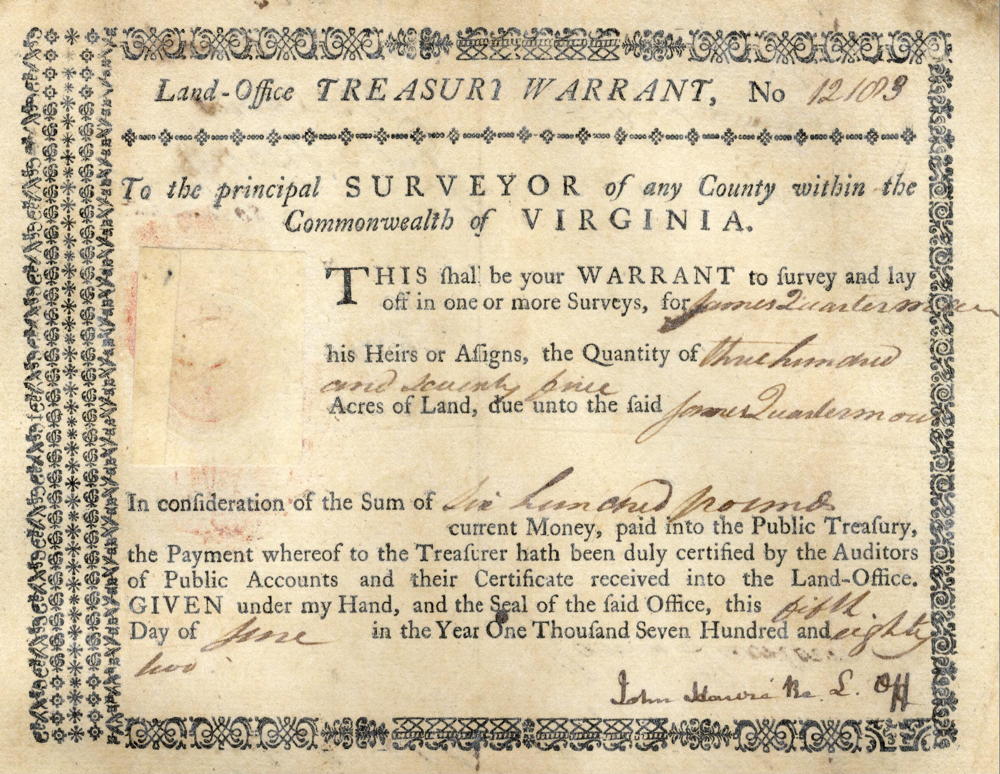 Land-Office TREASURY WARRANT, No 12103
To the principal SURVEYOR of any County within the
Commonwealth of VIRGINIA.
THIS ſhall be your WARRANT to ſurvey and lay
off in one or more Surveys, for James Quartermous
his Heirs or Aſſigns, the Quantity of three hundred
and seventy five
Acres of Land, due unto the ſaid James Quartermous
In conſideration of the Sum of Six hundred pounds
current Money, paid into the Public Treaſury,
the Payment whereof to the Treaſurer hath been duly certified by the Auditors
of Public Accounts and their Certificate received into the Land-Office.
GIVEN under my Hand, and the Seal of the ſaid Office, this fifth
Day of June in the Year One Thouſand Seven Hundred and eighty
two
John Harvie Re L. Off